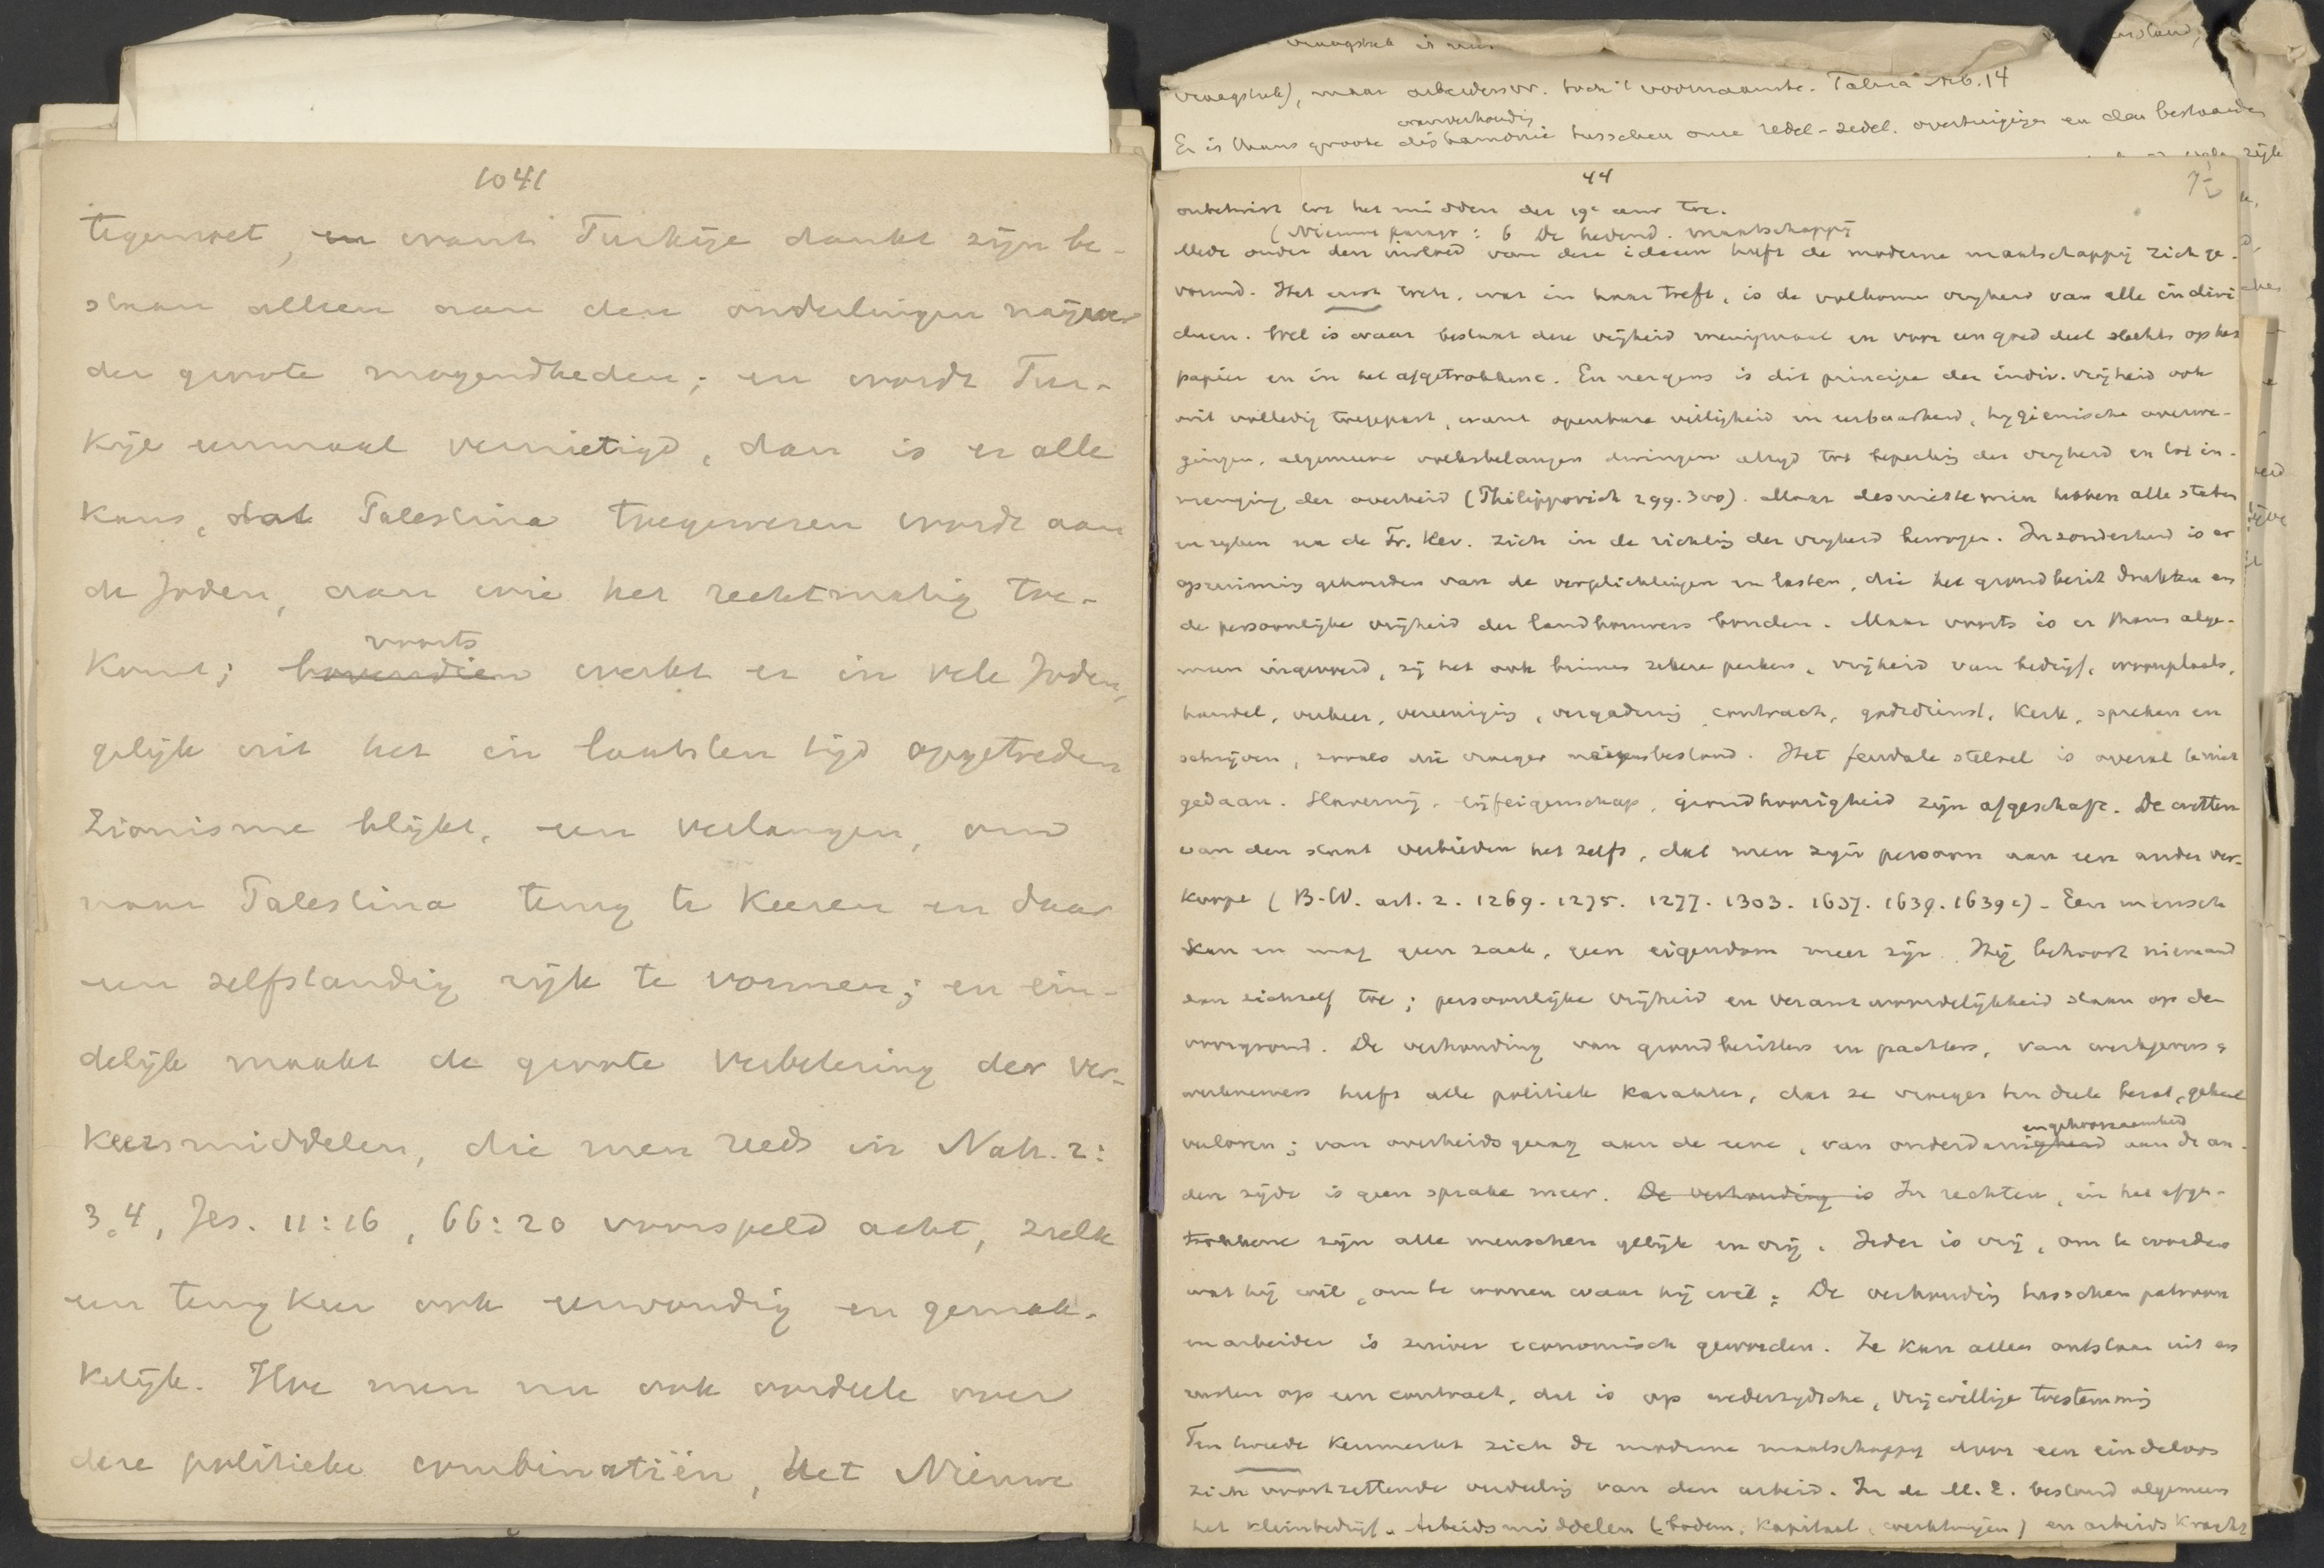 1041
tegemoet, en want Turkije dankt zijn be-
staan alleen aan den onderlingen naijver
der groote mogendheden; en wordt Tur-
kije eenmaal vernietigd, dan is er alle
kans, dat Palestina toegewezen wordt aan
de Joden, aan wie het rechtmatig toe-
voorts
komt; bovendien werkt er in vele Joden,
gelijk uit het in laatsten tijd opgetreden
Zionisme blijkt, een verlangen, om
naar Palestina terug te keeren en daar
een zelfstandig rijk te vormen; en ein-
delijk maakt de groote verbetering der ver-
keersmiddelen, die men reeds in Nah. 2:
3.4, Jes. 11:16, 66:20 voorspeld acht, zulk
een terugkeer ook eenvoudig en gemak-
kelijk. Hoe men nu ook oordeele over
deze politieke combinatiën, het Nieuwe
vraagstuk is
vraagstuk), maar arbeidersvr. toch 't voornaamste. Talma
wanverhoudig
Er is thans groote disharmonie tusschen onze redel-zedel. overtuigingen en den bestaanden
44
onbetwist tot het midden der 19e eeuw toe.
(Nieuwe paragr: 6 De hedend. maatschappij
Mede onder den invloed van deze ideeen heeft de moderne maatschappij zich ge-
vormd. Het eerst wat in haar treft, is de volkomen vrijheid van alle indivi
duen. Wel is waar bestaat deze vrijheid menigmaal en voor een goed deel slechts op het
papier en in het afgetrokkene. En nergens is dit principe der indiv. vrijheid ook
ooit volledig toegepast, want openbare veiligheid en eerbaarheid, hygienische overwe-
gingen, algemeene volksbelangen dwingen altijd tot beperking der vrijheid en tot in-
menging der overheid (Philippovich 299.300). Maar desniettemin hebben alle staten
en rijken na de Fr. Rev. zich in de richting der vrijheid bewogen. Inzonderheid is er
opruiming gehouden van de verplichtingen en lasten, die het grondbezit drukten en
de persoonlijke vrijheid der landbouwers bonden. Maar voorts is er thans alge-
meen ingevoerd, zij het ook binnen zekere perken, vrijheid van bedrijf, woonplaats,
handel, verkeer, vereeniging, vergadering contract, godsdienst, kerk, spreken en
schrijven, zooals die vroeger nergens bestond. Het feudale stelsel is overal te niet
gedaan. Slavernij, lijfeigenschap, grondhoorigheid zijn afgeschaft. De wetten
van den staat verbieden het zelfs, dat men zijn persoon aan een ander ver-
koope (B.W. art. 2. 1269. 1275. 1277. 1303. 1637. 1639. 1639c). Een mensch
kan en mag geen zaak, geen eigendom meer zijn. Hij behoort niemand
dan zichzelf toe; persoonlijke vrijheid en verantwoordelijkheid staan op den
voorgrond. De verhouding van grondbezitters en pachters, van werkgevers en
werknemers heeft alle politiek karakter, dat ze vroeger ten deele bezat, geheel
en gehoorzaamheid
verloren; van overheidsgezag aan de eene, van onderdanigheid aan de an-
dere zijde is geen sprake meer. De verhouding is In rechten, in het afge-
trokkene zijn alle menschen gelijk en vrij. Ieder is vrij, om te worden
wat hij wil, om te wonen waar hij wil; De verhouding tusschen patroon
en arbeider is zuiver economisch geworden. Ze kan alleen ontstaan uit en
rusten op een contract, dat is op wederzijdsche, vrijwillige toestemming
Ten tweede kenmerkt zich de moderne maatschappij door een eindeloos
zich voortzettende verdeeling van den arbeid. In de M.E. bestond algemeen
het kleinbedrijf. Arbeidsmiddelen (bodem, kapitaal, werktuigen) en arbeidskracht